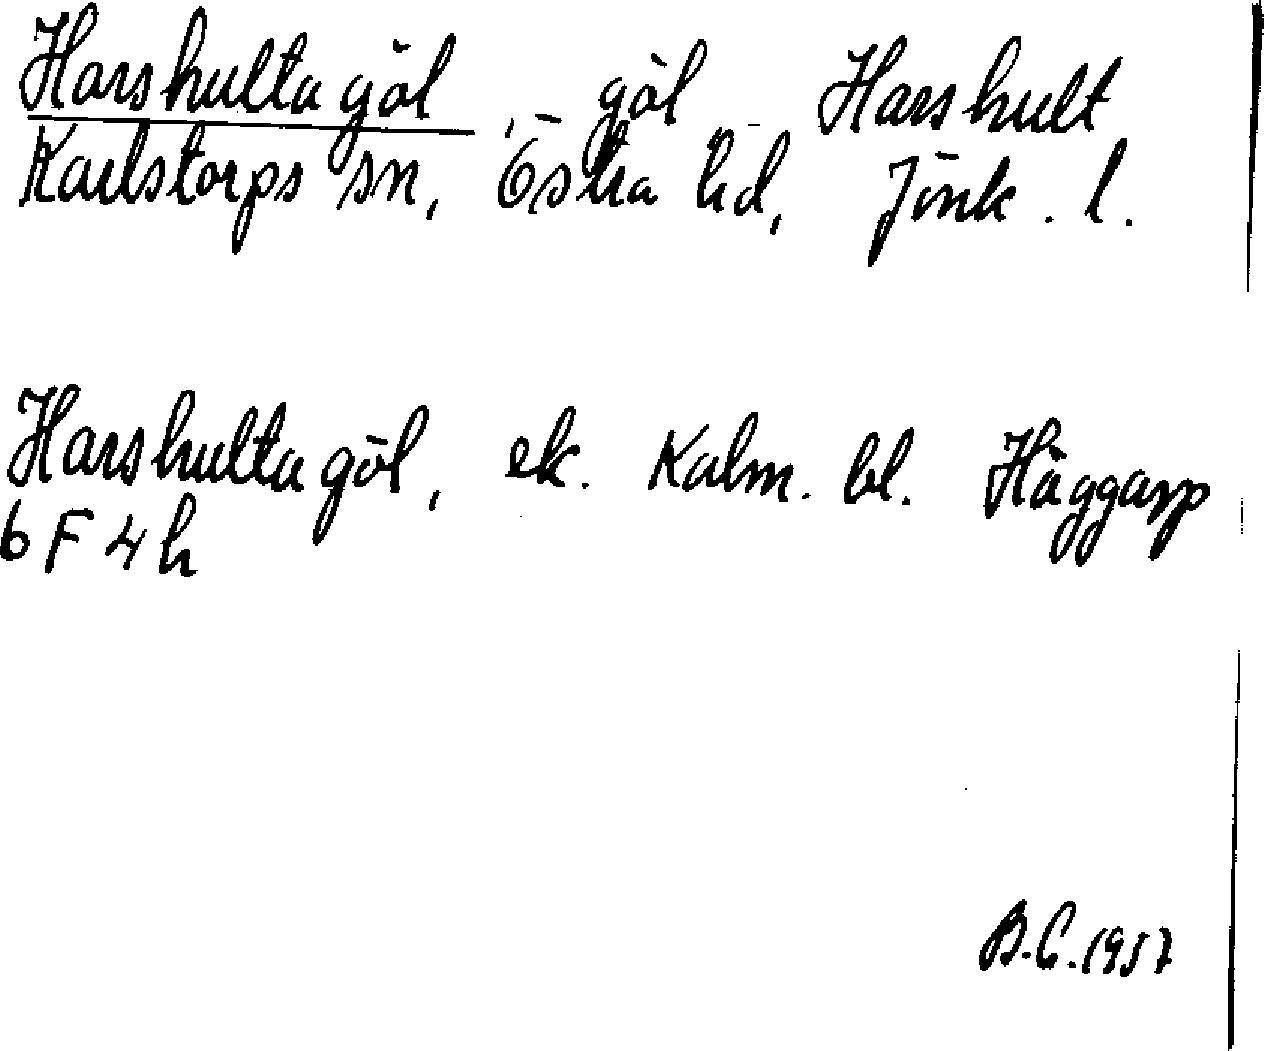 Harshultagöl, göl Harshult
Karlstorps sn, Östra hd, Jönk. l.
Harshultagöl, ek. Kalm. bl. Häggarp
6 F 4 h
B.G. 1957